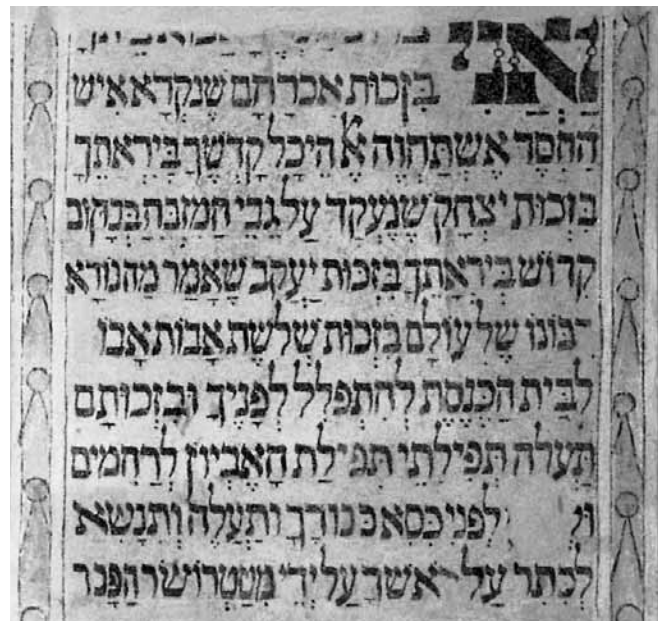 ואני
בִּזְכוּת אַבְרָהָם שֶׁנִקְרָא אִישׁ
הַחֶסֶד אֶשְׁתַּחֲוֶה אֶל הֵיכַל קָדְשְׁךָ בְּיִרְאָתֶךָ
בִּזְכוּת יִצְחָק שֶׁנֶעֱקַד עַל גַבֵי הַמִזְבֵּחַ
קָדוֹשׁ בְּיִרְאָתֶךָ בִּזְכוּת יַעֲקֹב שֶׁאָמַר מַה נוֹרָא
רִבּוֹנוֹ שֶׁל עוֹלָם בִּזְכוּת שְׁלֹשֶׁת אָבוֹת אָבוֹ
לְבֵית הַכְּנֶסֶת לְהִתְפַּלֵל לְפָנֶיךָ וּבִזְכוּתָם
תַּעֲלֶה תְּפִילָתִי תְּפִילַת הָאֶבְיוֹן לְרַחֲמִים
לִפְנֵי כִּסֵא כְּבוֹדֶךָ וְתַעֲלֶה וְתִנָשֵׂא
לְכֶתֶר עַל רֹאשְׁךָ עַל יְדֵי מְטַטְרוֹ שַׂר